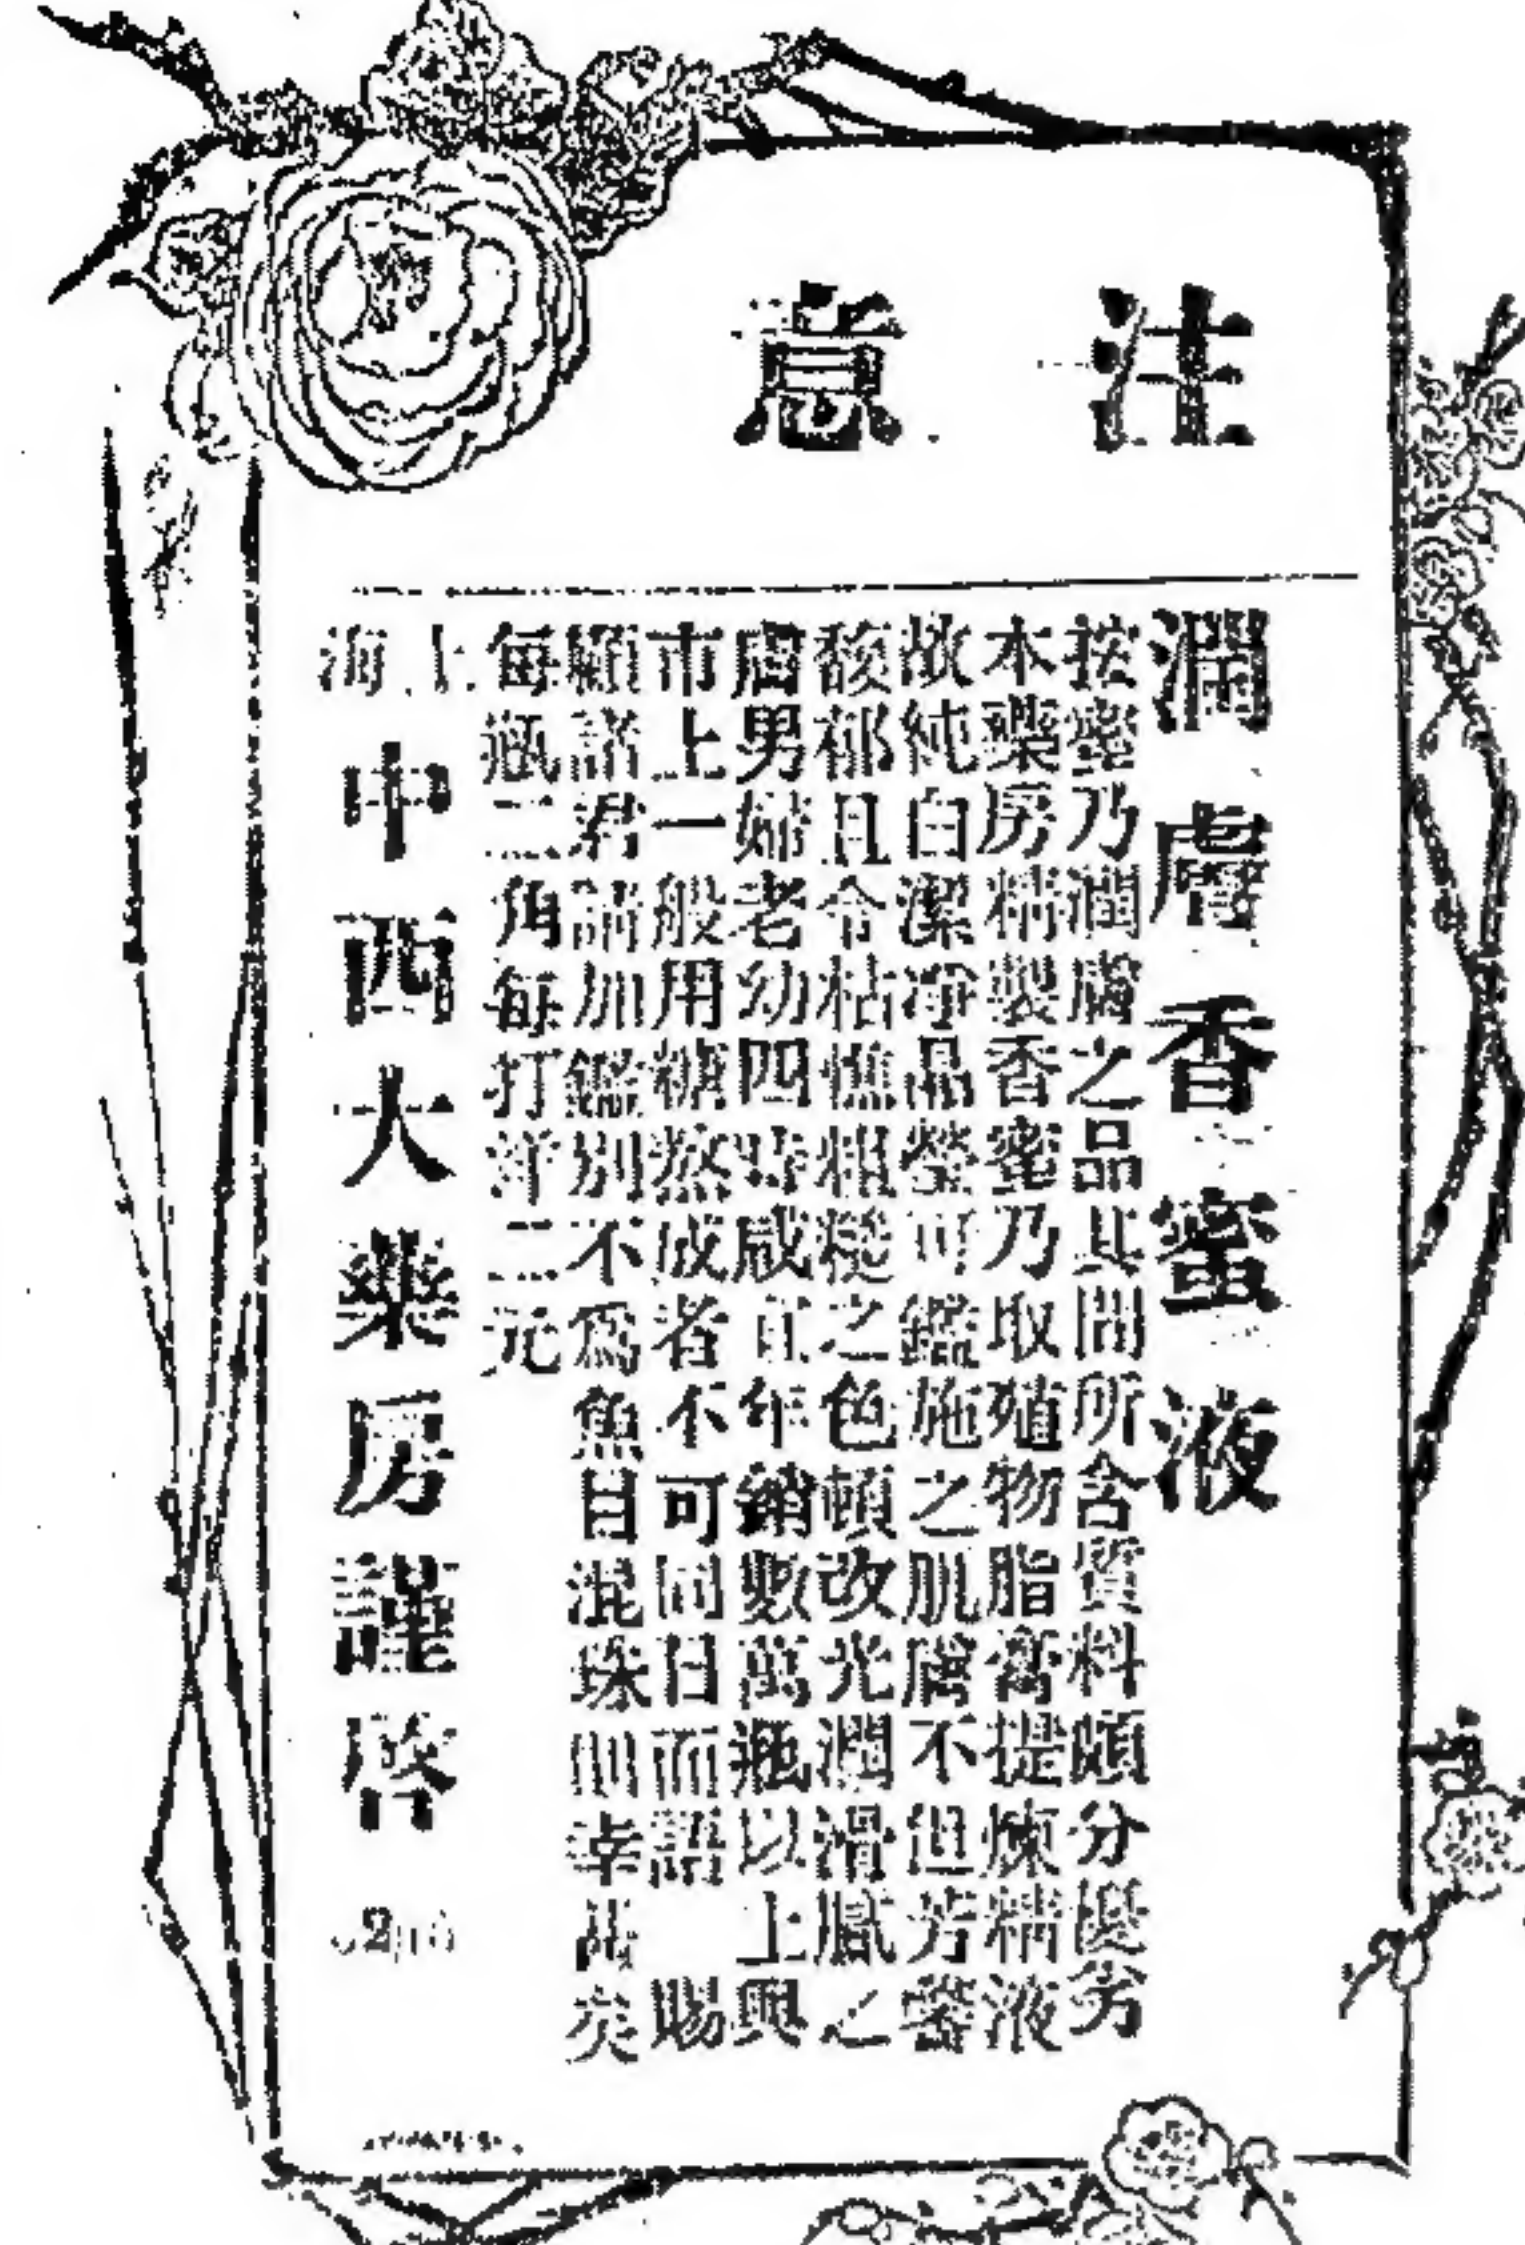 注意
潤膚香蜜液
按蜜乃潤膚之品其間所含質料頗分優劣
本藥房精製香蜜乃取殖物脂膏提煉精液
故純白潔凈晶瑩可鑑施之肌膚不但芳馨
馥郁且令枯憔粗糙之色頓改光潤滑膩之
膚男婦老幼四時咸宜年銷數萬瓶以上與
市上一般用糖熬成者不可同日而語 賜
顧諸君請加鑑別不爲魚目混珠則幸甚矣
每瓶二角每打洋二元
上海中西大藥房謹啓